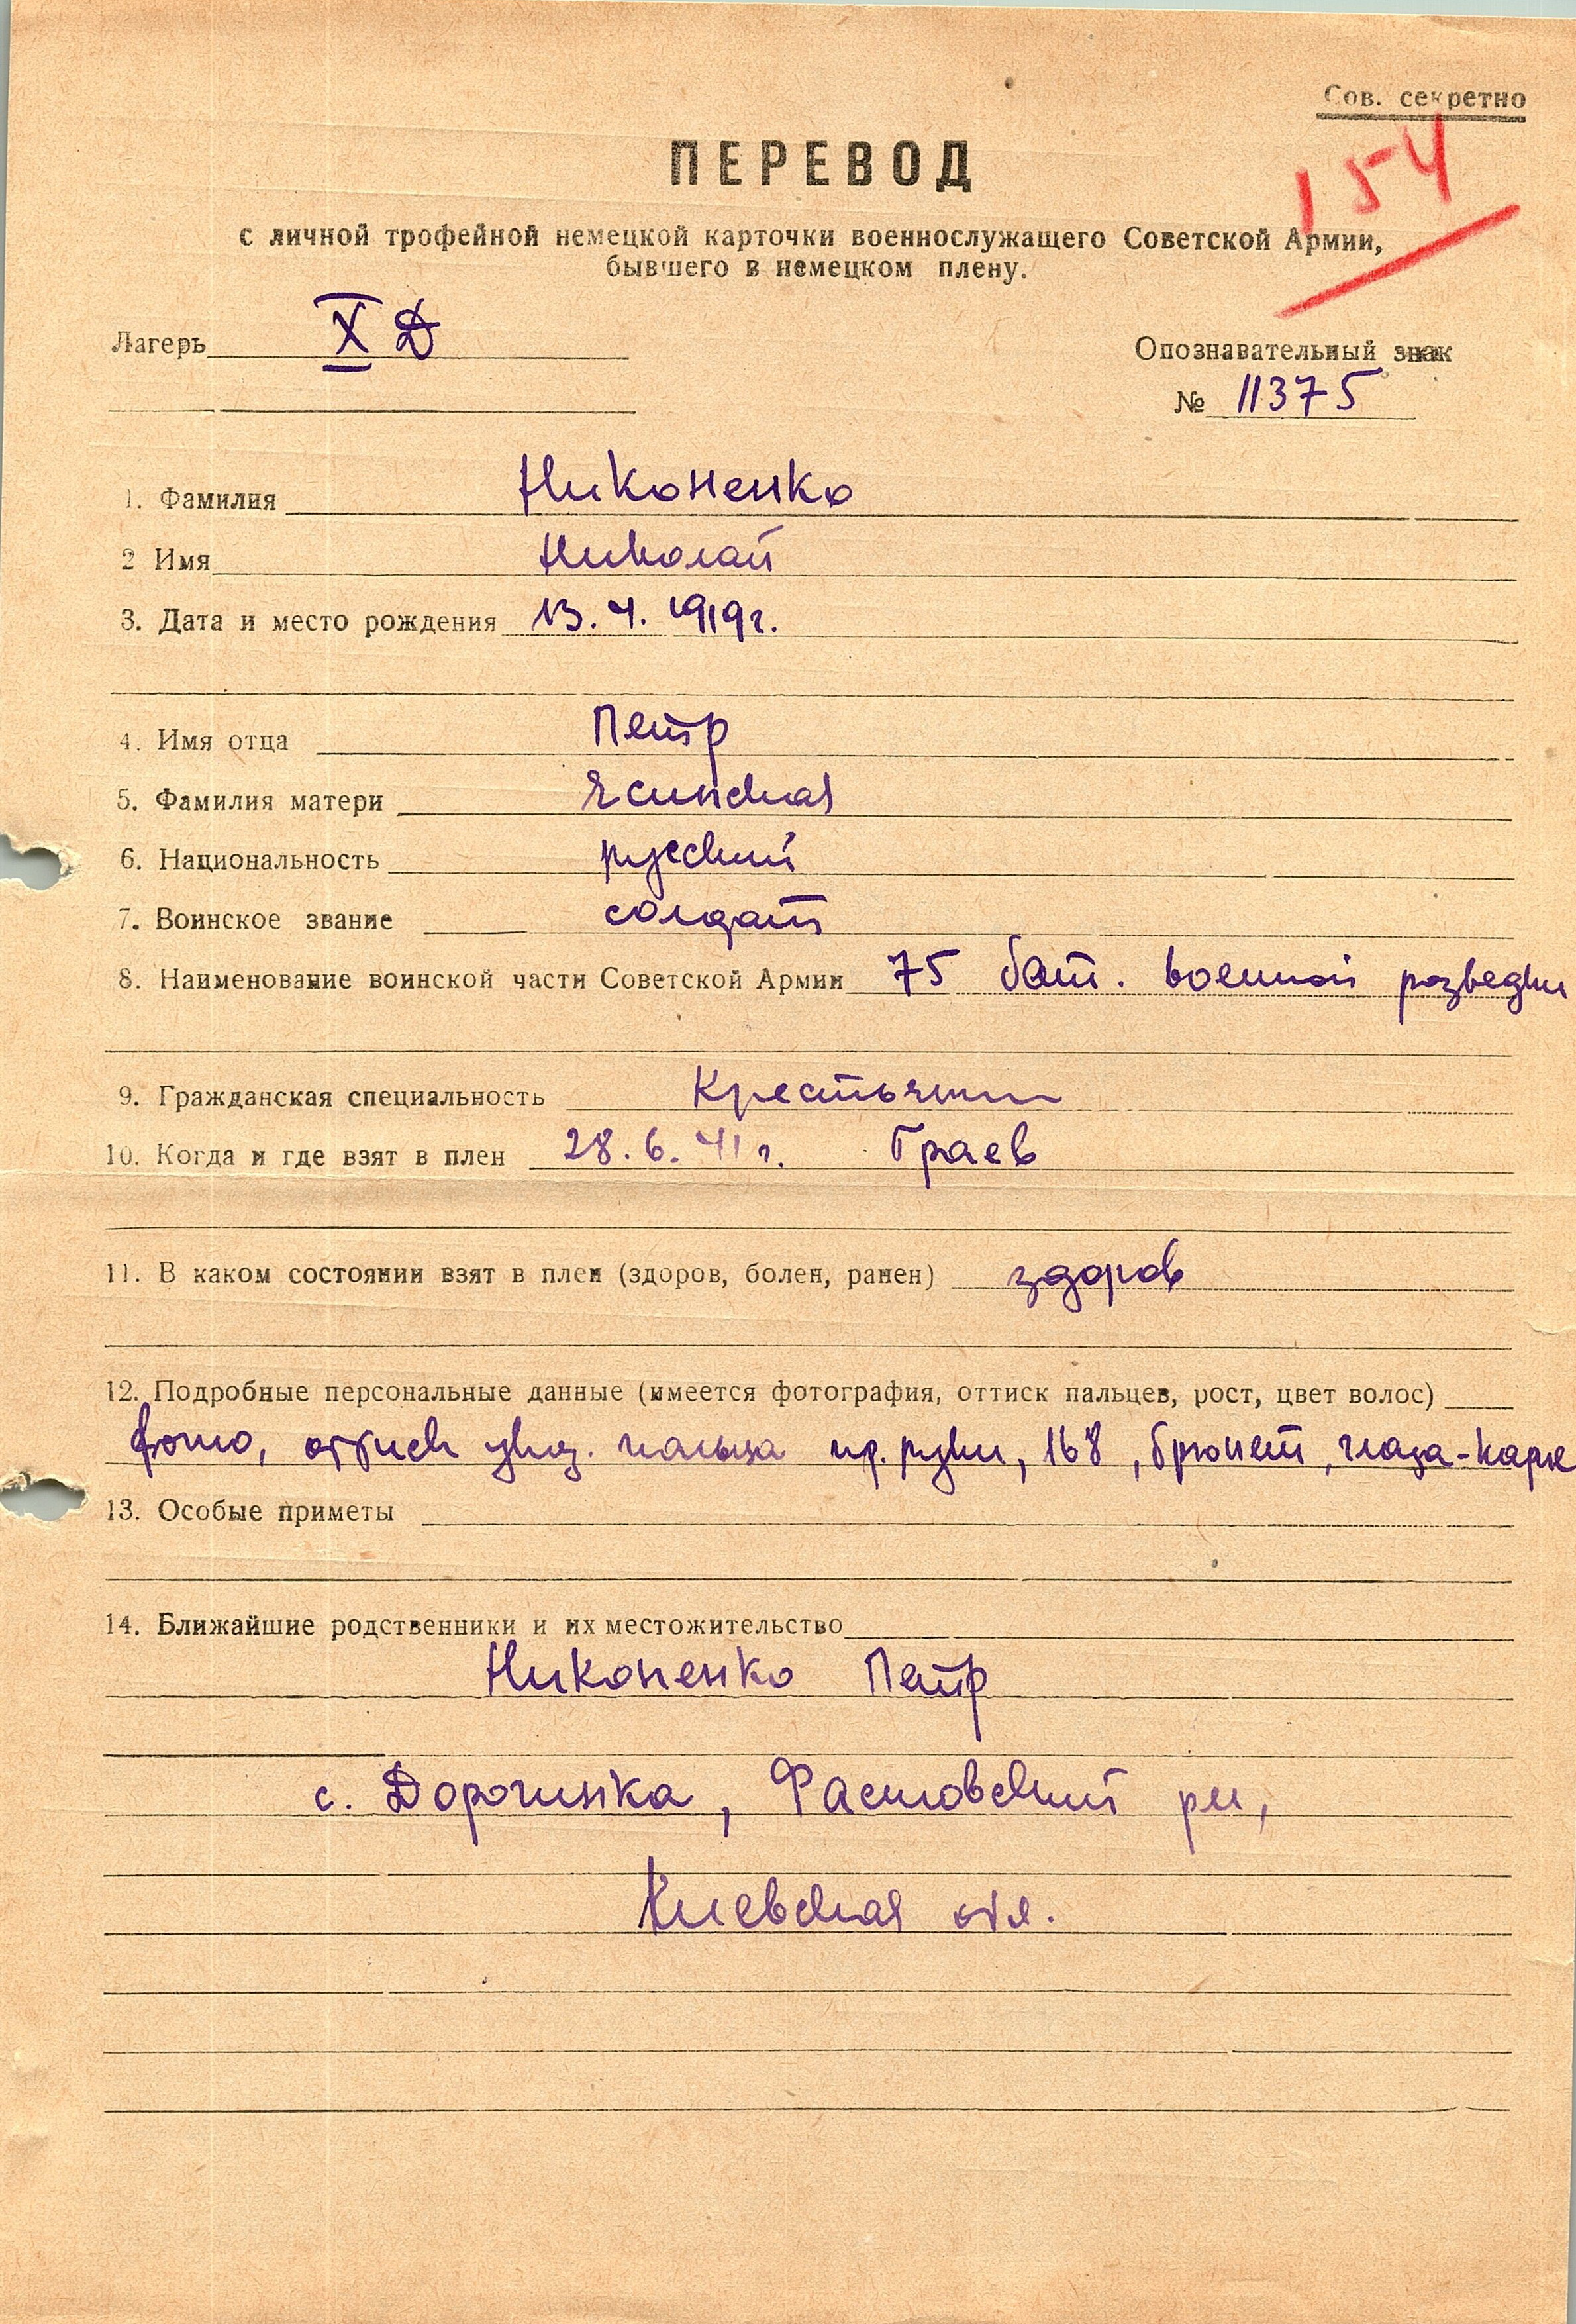 Сов. секретно
154
ПЕРЕВОД
с личной трофейной немецкой карточки военнослужащего Советской Армии,
бывшего в немецком плену.
Лагерь X Д
Опознавательный знак
№ 11375
1. Фамилия Никоненко
2 Имя Николай
3. Дата и место рождения 13.4.1919г.
4. Имя отца Петр
5. Фамилия матери Ясинская
6. Национальность русский
7. Воинское звание солдат
8. Наименование воинской части Советской Армии 75 бат. военной розведки
9. Гражданская специальность Крестьянин
10. Когда и где взят в плен 28.6.41г. Граев
11. В каком состоянии взят в плен (здоров, болен, ранен) здоров
12. Подробные персональные данные (имеется фотография, оттиск пальцев, рост, цвет волос)
фото, оттиск указ. пальца пр. руки, 168, брюнет, глаза-карие
13. Особые приметы
14. Ближайшие родственники и их местожительство
Никоненко Петр
с. Дорогинка, Фастовский рн,
Киевская обл.